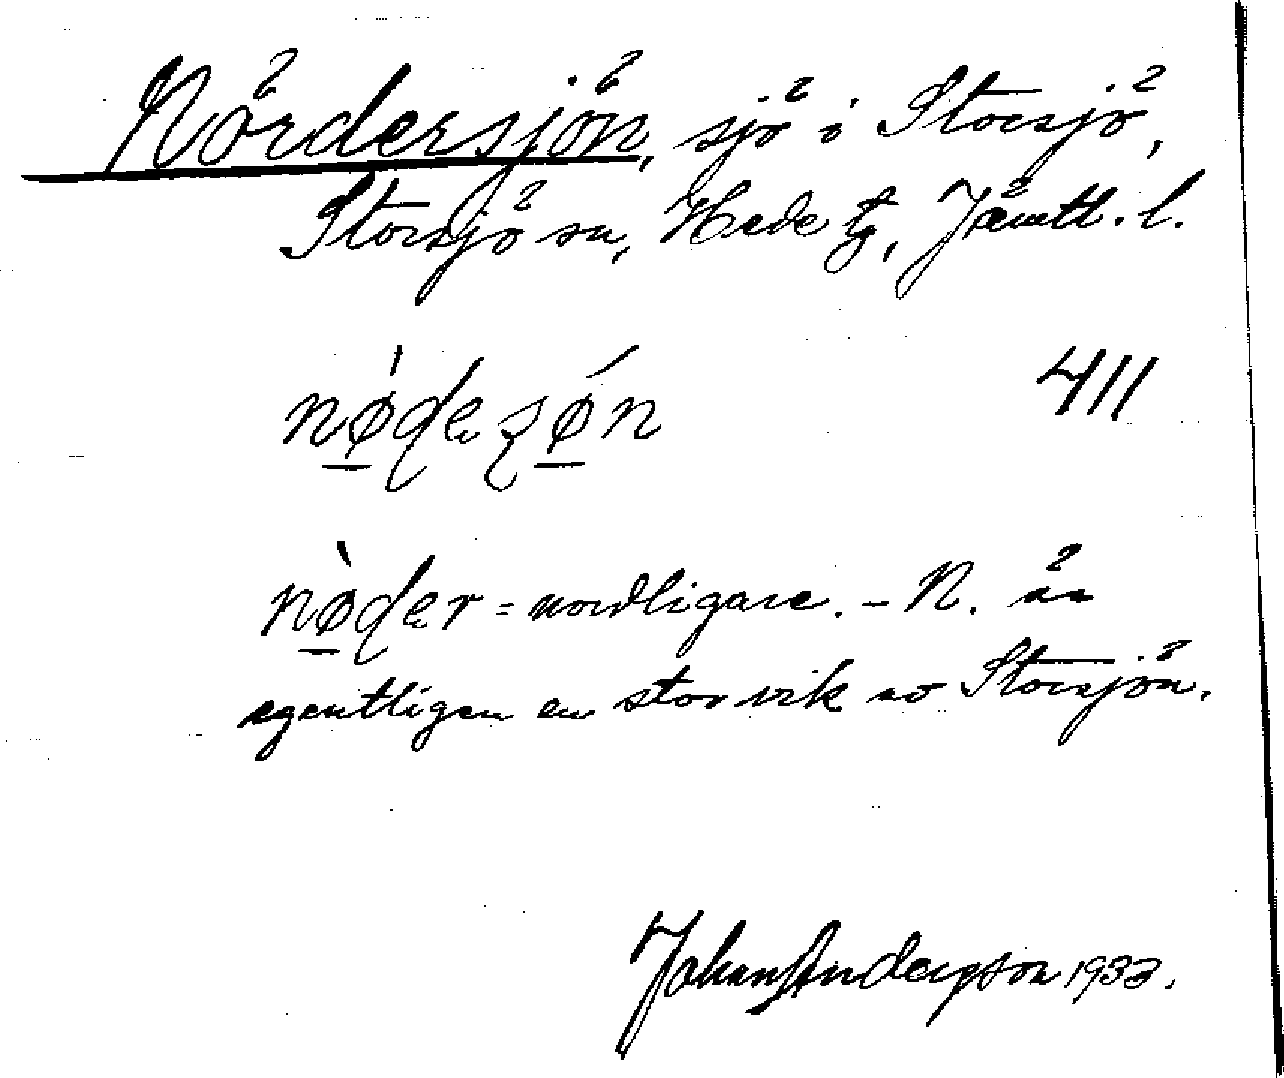 Nördersjön, sjö i Storsjö,
Storsjö sn, Hede tg, Jämtl. l.
nø̲dezø̲n 411
nø̲der = nordligare. – N. är
egentligen en stor vik av Storsjön.
Johan Anderson 1933.